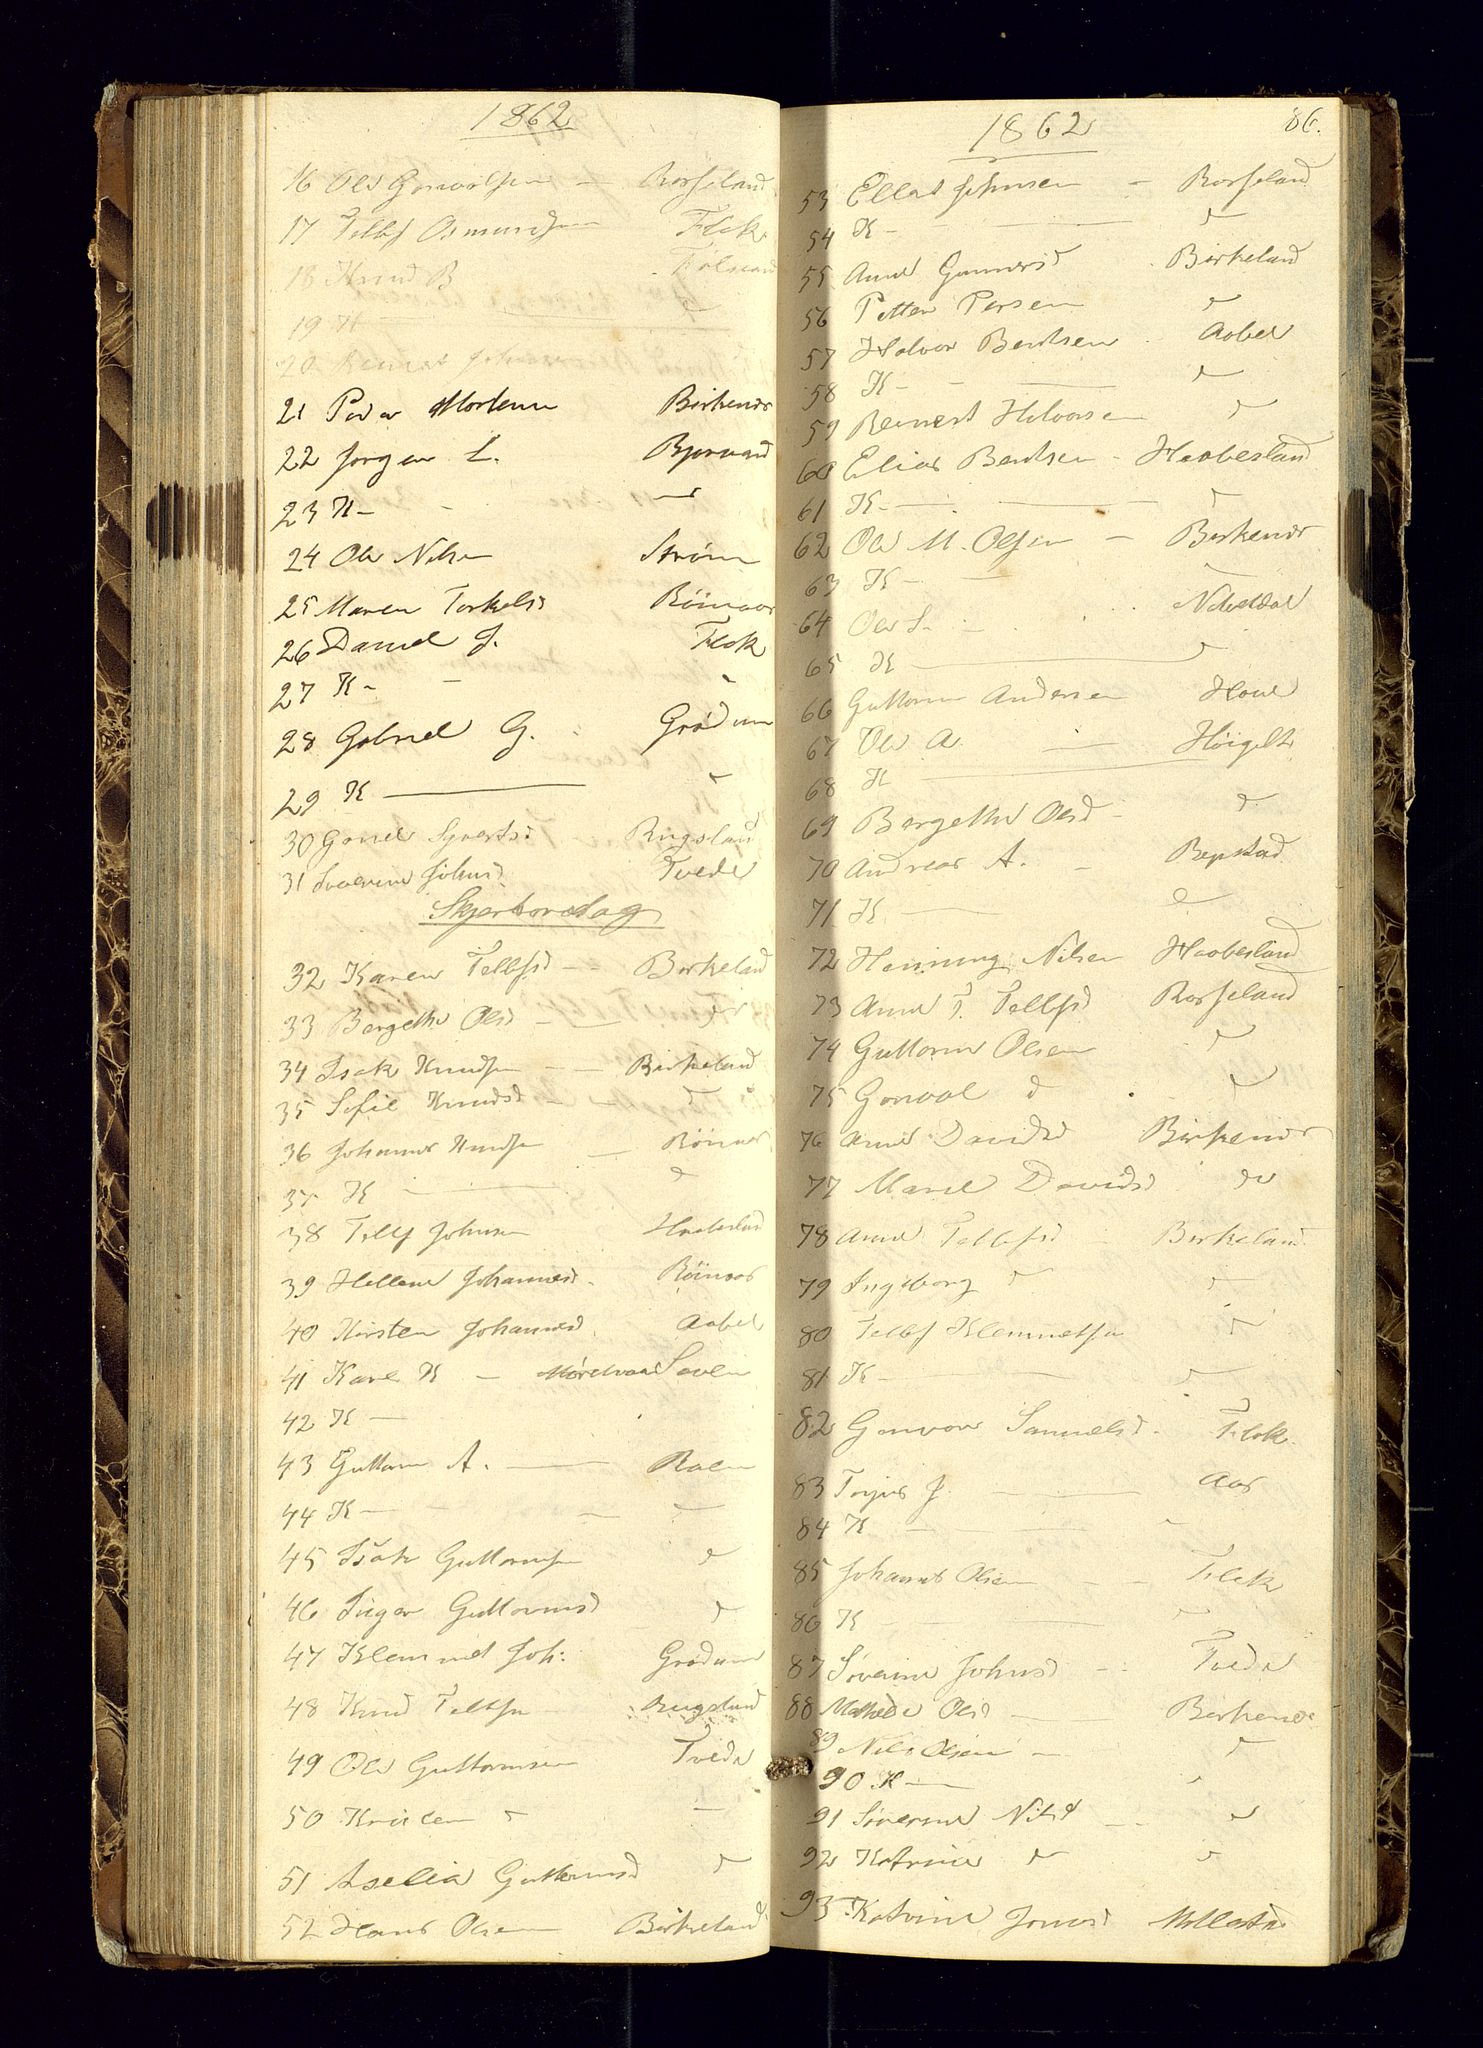 1862
16 Ole Gonvalsen — Rosseland
17 Tellef Osmundsen Flak
18 Knud B Fölevand
19 K — "
20 Reinert Johnsen
21 Peder Mortensen Birkenes
22 Jorgen L. Bjorvand
23 K — —
24 Ole Nilsen Strøm
25 Maren Torkelsd Röinaas
26 Daniel J. Flak
27 K — "
28 Gabriel G. Grødum
29 K — "
30 Gonel Syvertsd Rugsland
31 Severine Johnsd Tvede
Skjertorsdag
32 Karen Tellefsd — Birkeland
33 Bergethe Olsd — d
34 Isak Knudsen — Birkeland
35 Sofie Knudsd — d
36 Johannes Knudsen — Röinaas
37 K — d
38 Tellef Johnsen Haabesland
39 Hellene Johannesd. Röinaas
40 Kirsten Johannesd. Aabel
41 Karl K — Mørchvand Saven
42 K —
43 Guttorm A. — Raen
44 K — — —
45 Isak Guttormsen d
46 Inger Guttormsd d
47 Klemmet Joh: Grødum
48 Knud Tellefsen Rugsland
49 Ole Guttormsen Tvede
50 d —
51 Aselia Guttormsd d
52 Hans Olsen Birkeland
1862 86.
53 Ellas Johnsen — Rosseland
54 K — d
55 Anne Gunnersd. Birkeland
56 Petter Persen d
57 Halvor Bentsen Aabel
58 K — d
59 Reinert Halvorsen d
60 Elias Bentsen — Haabesland
61 K — d
62 Ole M. Olsen — Birkenes
63 K —
64 Ole S. — Natveldal
65 K — d
66 Guttorm Andersen Hove
67 Ole A — Høigilt
68 K —
69 Bergethe Olsd — d
70 Andreas A. — Repstad
71 K — d
72 Henning Nilsen Haabesland
73 Anne T. Tellefsd Rosseland
74 Guttorm Olsen d
75 Gonval d d
76 Anne Davidsd Birkenes
77 Maria Davidsd do
78 Anne Tellefsd Birkeland
79 Ingeborg d d
80 Tellef Klemmetsen d
81 K — d
82 Gonvor Samuelsd. Flak.
83 Torjus J. — Aas
84 K — "
85 Johannes Olsen — — Flak
86 K — "
87 Severine Johnsd — Tvede
88 Mathilde Olsd — Birkenes
89 Nils Olsen — d
90 K — "
91 Severine Nilsd — d
92 Katrine d d
93 Katrine Jonsd Mollestad